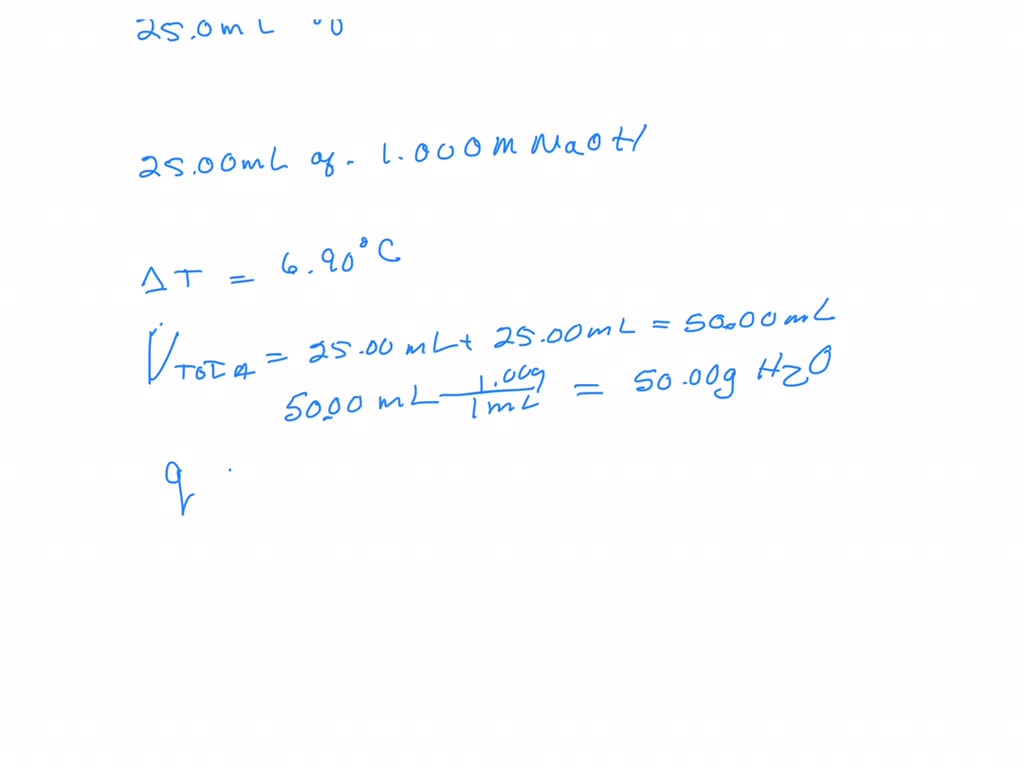 25.0mL
25.00mL of 1.000M NaOH
ΔT = 6.90°C
V = 25.00 mL + 25.00mL = 50.00mL
50.00 mL 1.00g/1mL = 50.00g H2O
q